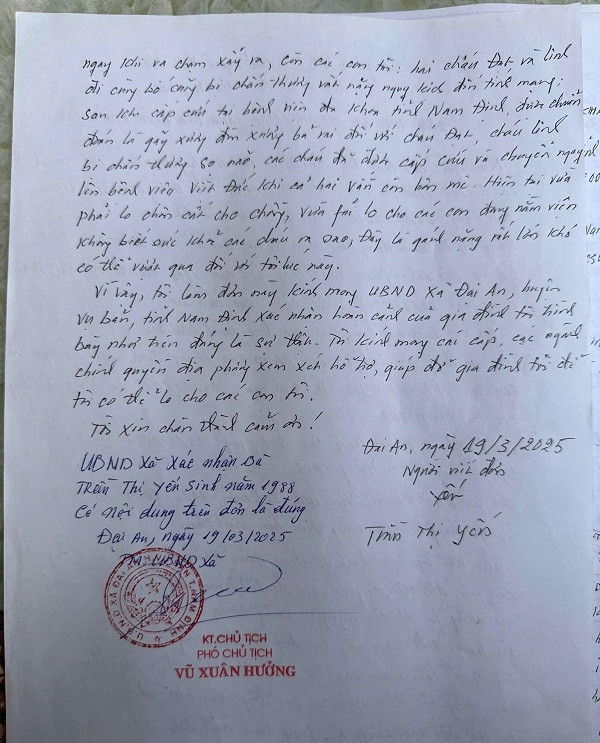 ngay khi va chạm xảy ra, còn các con tôi: hai cháu Đạt và Linh
đi cùng bố cũng bị chấn thương rất nặng nguy kịch đến tính mạng,
sau khi cấp cứu tại bệnh viện đa khoa tỉnh Nam Định được chuẩn
đoán là gãy xương đòn xương bả vai đối với cháu Đạt, cháu Linh
bị chấn thương sọ não, các cháu đã được cấp cứu và chuyển ngay
lên bệnh viện Việt Đức khi cả hai vẫn còn hôn mê. Hiện tại vừa
phải lo chôn cất cho chồng, vừa phải lo cho các con đang nằm viện
không biết sức khỏe các cháu ra sao, Đây là gánh nặng rất lớn khó
có thể vượt qua đối với tôi lúc này.
Vì vậy, tôi làm đơn này kính mong UBND Xã Đại An, huyện
Vụ bản, tỉnh Nam Định xác nhận hoàn cảnh của gia đình tôi trình
bày như trên đúng là sự thật. Tôi kính mong các cấp, các ngành
chính quyền địa phương xem xét hỗ trợ, giúp đỡ gia đình tôi để
tôi có thể lo cho các con tôi.
Tôi xin chân thành cảm ơn!
Đại An, ngày 19/3/2025
Người viết đơn
Yến
Trần Thị Yến
UBND Xã Xác nhận Bà
Trần Thị Yến Sinh năm 1988
Có nội dung trên đơn là đúng
Đại An, ngày 19/03/2025
TM. UBND Xã
U.B.N.D XÃ ĐẠI AN T.NAM ĐỊNH
KT.CHỦ TỊCH
PHÓ CHỦ TỊCH
VŨ XUÂN HƯỞNG